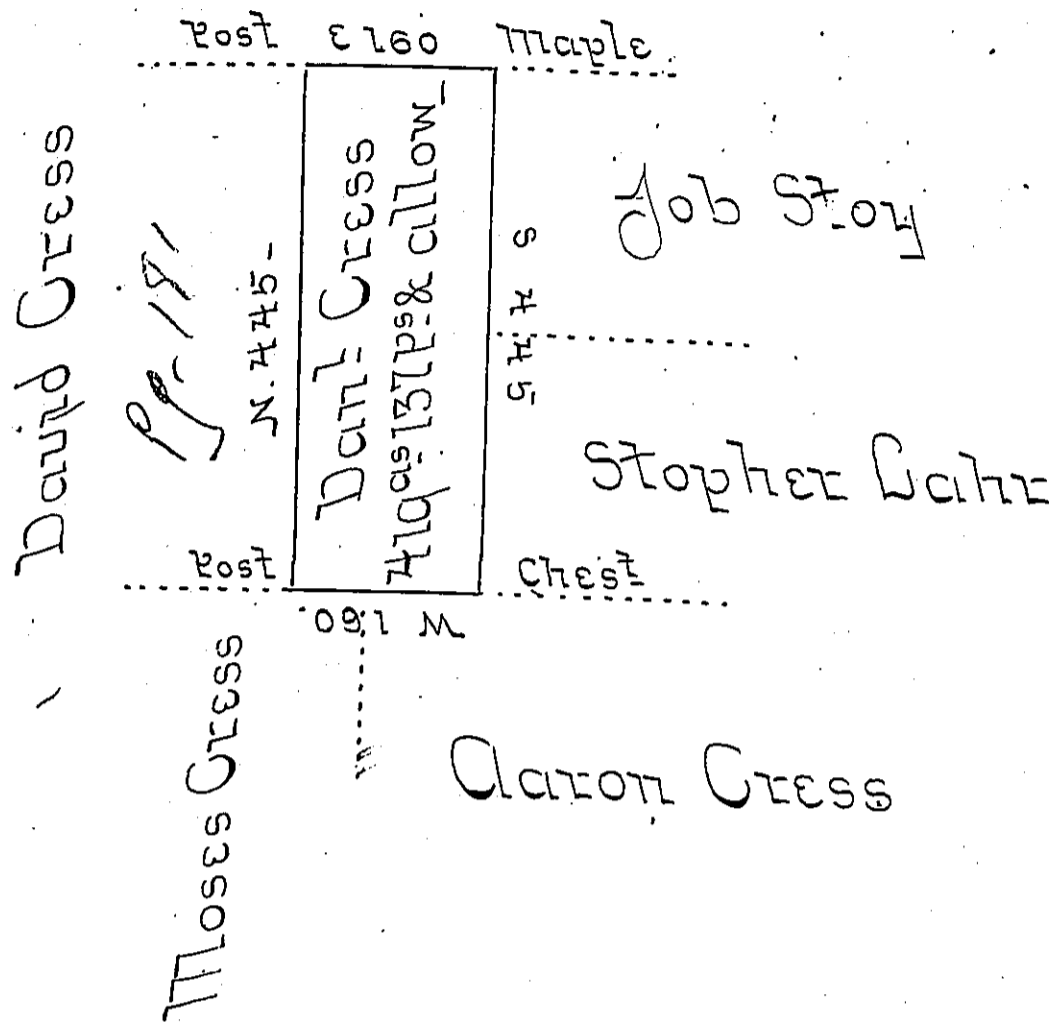 Post E 160 Maple
David Cress
N. 445-
Danl= Cress
419as 137ps & allow-
S 445
Job Stoy
Stopher Lahr
Post Chest
W 160.
Moses Cress
Aaron Cress